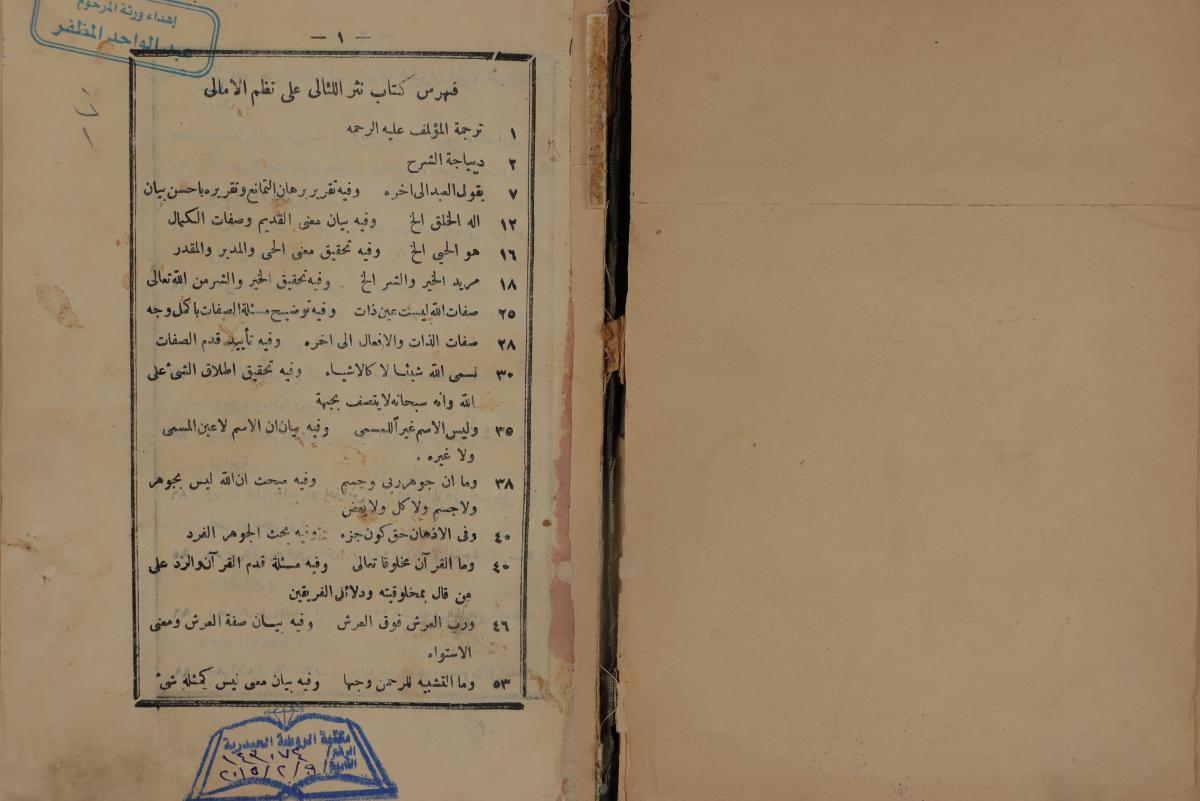 إهداء ورثة المرحوم
عبد الواحد المظفر
— ١ —
فهرس كتاب نثر اللئالى على نظم الامالى
١ ترجمة المؤلف عليه الرحمه
٢ ديباجة الشرح
٧ يقول العبد الى اخره وفيه تقرير برهان التمانع وتقريره باحسن بيان
١٢ اله الخلق الخ وفيه بيان معنى القديم وصفات الكمال
١٦ هو الحيي الخ وفيه تحقيق معنى الحى والمدبر والمقدر
١٨ مريد الخير والشر الخ وفيه تحقيق الخير والشر من الله تعالى
٢٥ صفات الله ليست عين ذات وفيه توضيح مسئلة الصفات باكمل وجه
٢٨ صفات الذات والافعال الى اخره وفيه تأييد قدم الصفات
٣٠ نسمى الله شيئا لا كالاشياء وفيه تحقيق اطلاق الشئ على
الله وانه سبحانه لايتصف بجهة
٣٥ وليس الاسم غيرآ للمسمى وفيه بيان ان الاسم لاعين المسمى
ولا غيره .
٣٨ وما ان جوهر ربى وجسم وفيه مبحث ان الله ليس بجوهر
ولاجسم ولا كل ولا بعض
٤٠ وفى الاذهان حق كون جزء وفيه بحث الجوهر الفرد
٤٠ وما القرآن مخلوقا تعالى وفيه مسئلة قدم القرآن والرد على
من قال بمخلوقيته ودلائل الفريقين
٤٦ ورب العرش فوق العرش وفيه بيان صفة العرش ومعنى
الاستواء
٥٣ وما التشبيه للرحمن وجها وفيه بيان معى ليس كمثله شئ
مكتبة الروضة الحيدرية
الرقم
التاريخ ٢٠١٥/٢/٩